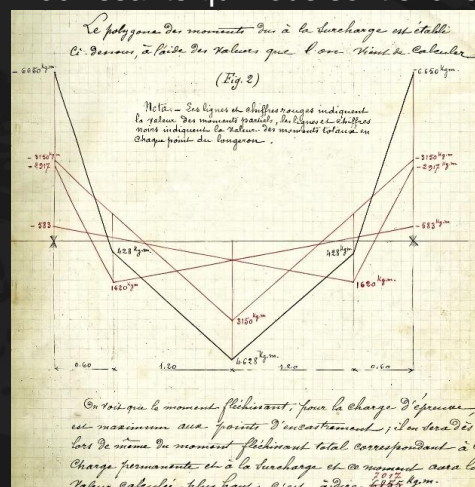 Le polygone des moments dus à la Surcharge est établi
Ci-dessous, à l'aide des valeurs que l'on vient de calculer
(Fig. 2)
- 6650 kg.m
6.650 kg.m
Nota. - Les lignes et chiffres rouges indiquent
la valeur des moments partiels, les lignes et chiffres
noirs indiquent la valeur des moments totaux en
chaque point du longeron.
- 3150
- 2917
- 3150 kg.m
- 2917 kg.m
- 583
- 583 kg.m
428 kg.m
428 kg.m
1620 kg.m
1620 kg.m
3150 kg.m
4628 kg.m
0.60
1.20
1.20
0.60
On voit que le moment fléchissant, pour la charge d'épreuve
est maximum aux points d'encastrement ; il en sera dès
lors de même du moment fléchissant total correspondant à
Charge permanente et à la Surcharge et ce moment aura
valeur calculée plus haut kg.m.